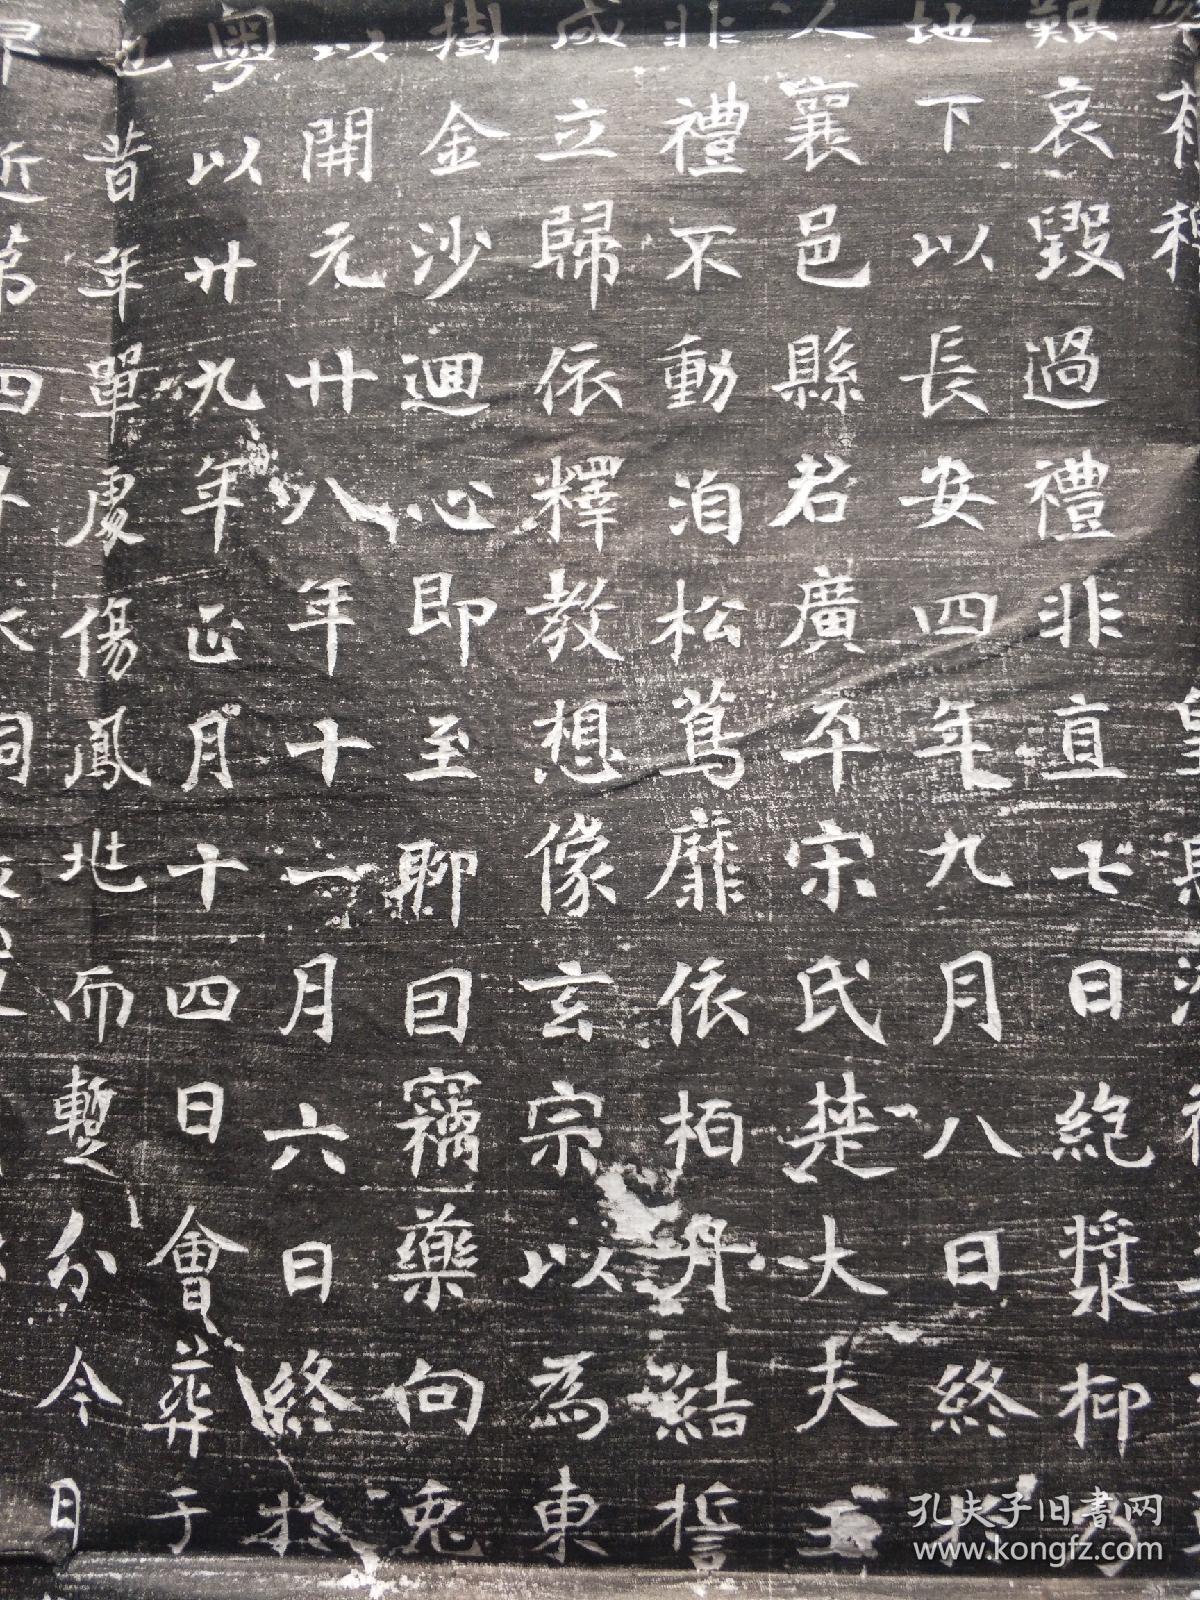 艱哀毀過禮非直七日絶漿柳
地下以長安四年九月八日終於
人襄邑縣君廣平宋氏楚大夫玉
非禮不動洎松蔦靡依栢舟結誓
成立歸依釋教想像玄宗以為東
樹金沙迴心即至聊曰竊藥向兎
以開元廿八年十一月六日終於
粤以廿九年正月十四日會葬于
也昔年單處傷鳳㘴而暫分今日
近第四
孔夫子旧書网
www.kongfz.com